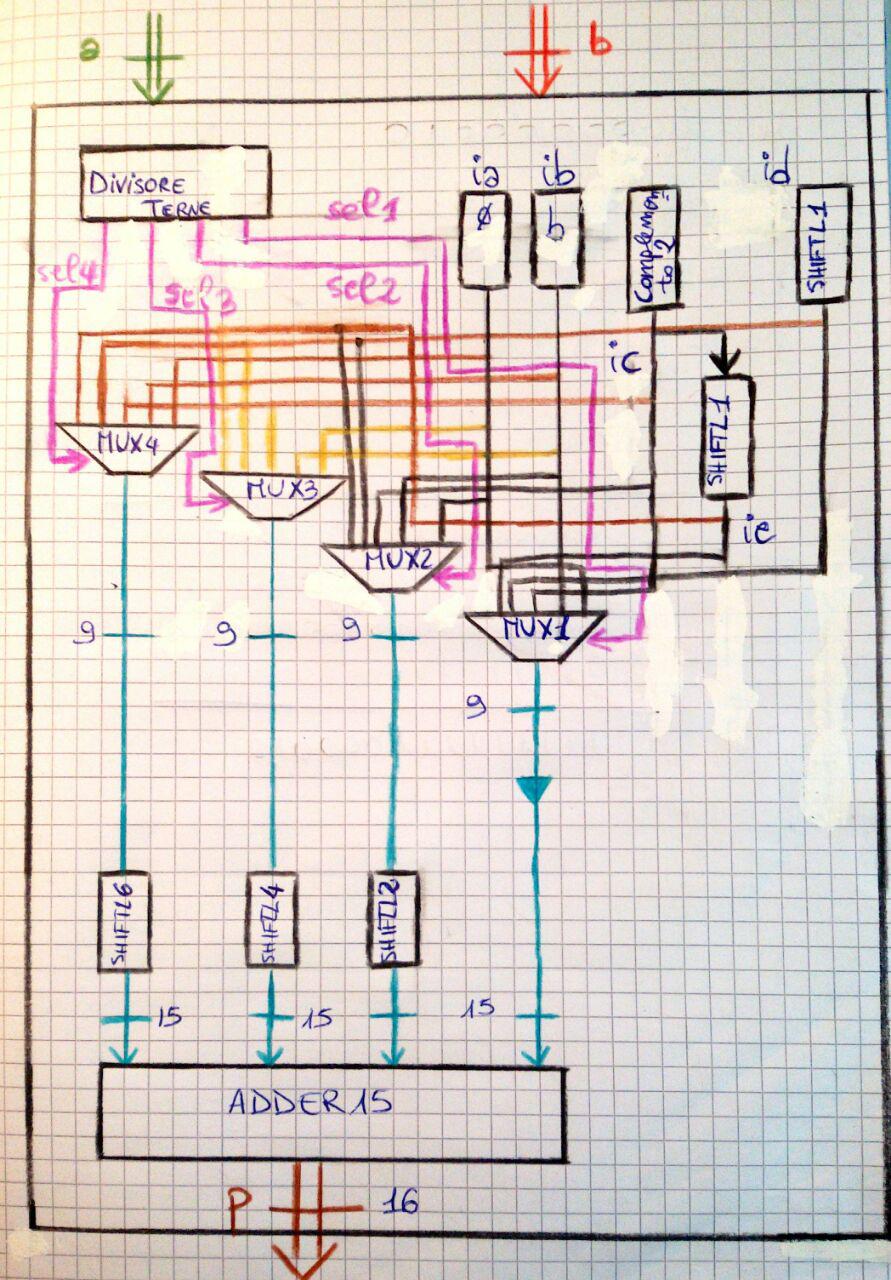 a
b
DIVISORE
TERNE
sel1
sel2
sel3
sel4
ia
ib
id
0
b
Complement
to 2
SHIFTL1
ic
SHIFTL1
ie
MUX4
MUX3
MUX2
MUX1
9
9
9
9
SHIFTL6
SHIFTL4
SHIFTL2
15
15
15
ADDER15
P
16